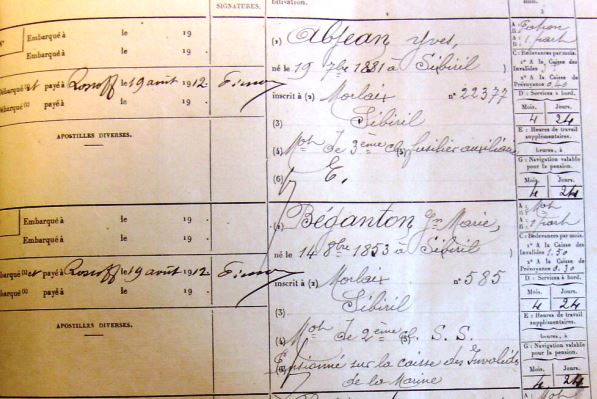 SIGNATURES.
Embarqué à le 19
Embarqué à le 19
et payé à Roscoff le 19 août 1912
APOSTILLES DIVERSES.
(1) Abjean Yves,
né le 19 7bre 1881 à Sibiril
inscrit à (2) Morlaix n° 22377
(3) Sibiril
(4) Mot de 3ème cl (5) fusilier auxiliaire
(6) E.
A :
B : 1 part
C : Redevances par mois.
1° A la Caisse des Invalides
2° A la Caisse de Prévoyance 0.40
D : Services à bord.
Mois. Jours.
4 24
E : Heures de travail supplémentaires.
heures, à
G : Navigation valable pour la pension.
Mois. Jours.
4 24
Embarqué à le 19
Embarqué à le 19
et payé à Roscoff le 19 août 1912
APOSTILLES DIVERSES.
(1) Béganton Jn Marie,
né le 14 8bre 1853 à Sibiril
inscrit à (2) Morlaix n° 585
Sibiril
(3)
(4) Mot de 2ème cl. S. S.
Pensionné sur la caisse des Invalides
de la Marine
A : Mot
B : 1 part
C : Redevances par mois.
1° A la Caisse des Invalides 1.50
2° A la Caisse de Prévoyance 0.30
D : Services à bord.
Mois. Jours.
4 24
E : Heures de travail supplémentaires.
heures, à
G : Navigation valable pour la pension.
Mois. Jours.
4 24
A : Mot